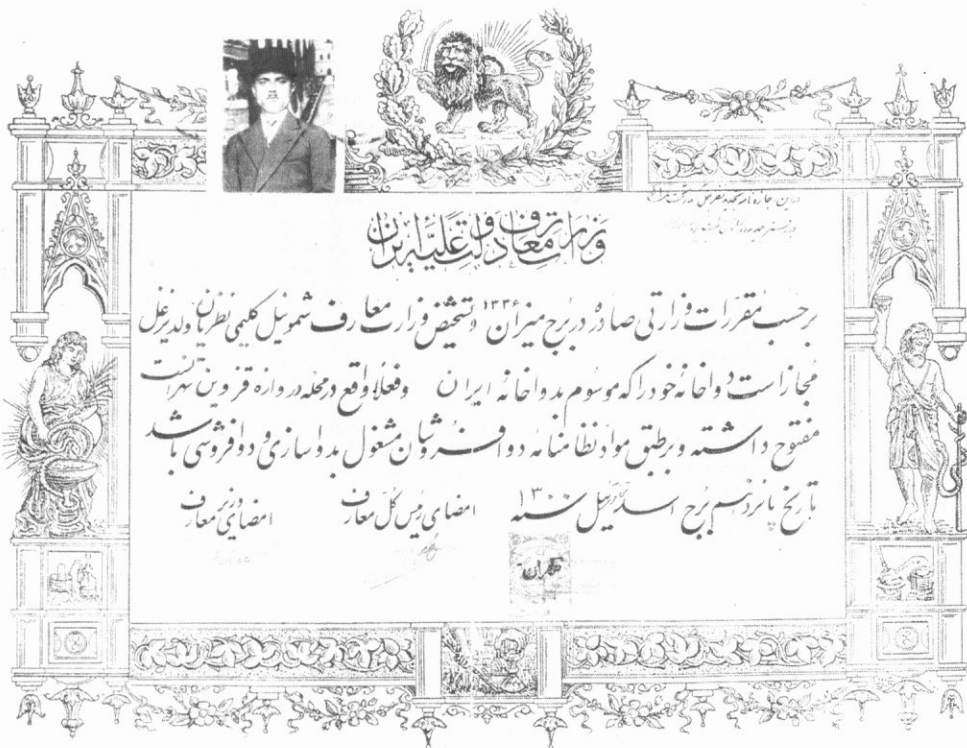 وزارت معارف دولت علیه ایران
برحسب مقررات وزارتی صادره در برج میزان ۱۳۳۶ و تشخیص وزارت معارف شموئیل کلیمی نظریان ولد یزغل
مجاز است دواخانه خود را که موسوم بدواخانه ایران وفعلا واقع در محله دروازه قزوین تهرانست
مفتوح داشته و برطبق مواد نظامنامه دوافروشان مشغول بدواسازی و دوافروشی باشد
تاریخ پانزدهم برج اسد ئیل سنه ۱۳۰۰
امضای رئیس کل معارف
امضای وزیر معارف
طهران